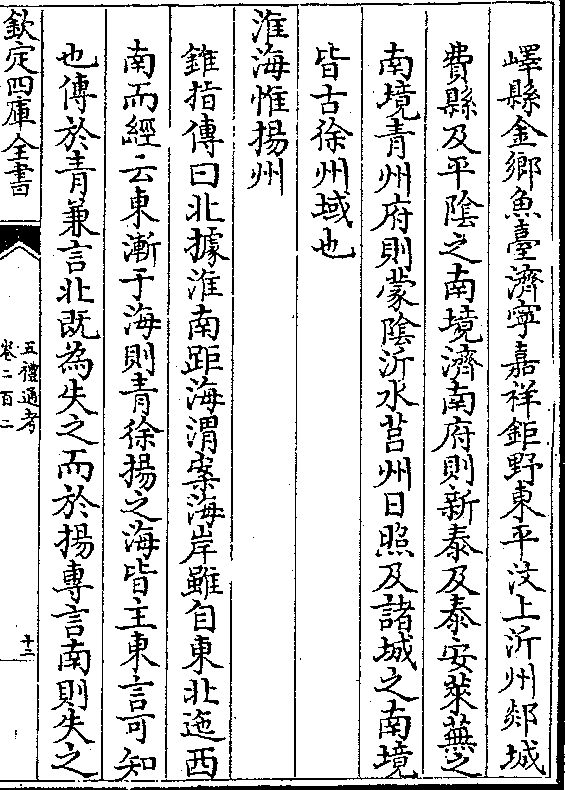 嶧縣金鄉魚臺濟寧嘉祥鉅野東平汶上沂州郯城
費縣及平陰之南境濟南府則新泰及泰安萊蕪之
南境青州府則蒙陰沂水莒州日照及諸城之南境
皆古徐州域也
淮海惟揚州
錐指傳曰北據淮南距海渭案海岸雖自東北迤西
南而經云東漸于海則青徐揚之海皆主東言可知
也傳於青兼言北既為失之而於揚專言南則失之
欽定四庫全書
五禮通考
卷二百二
十二